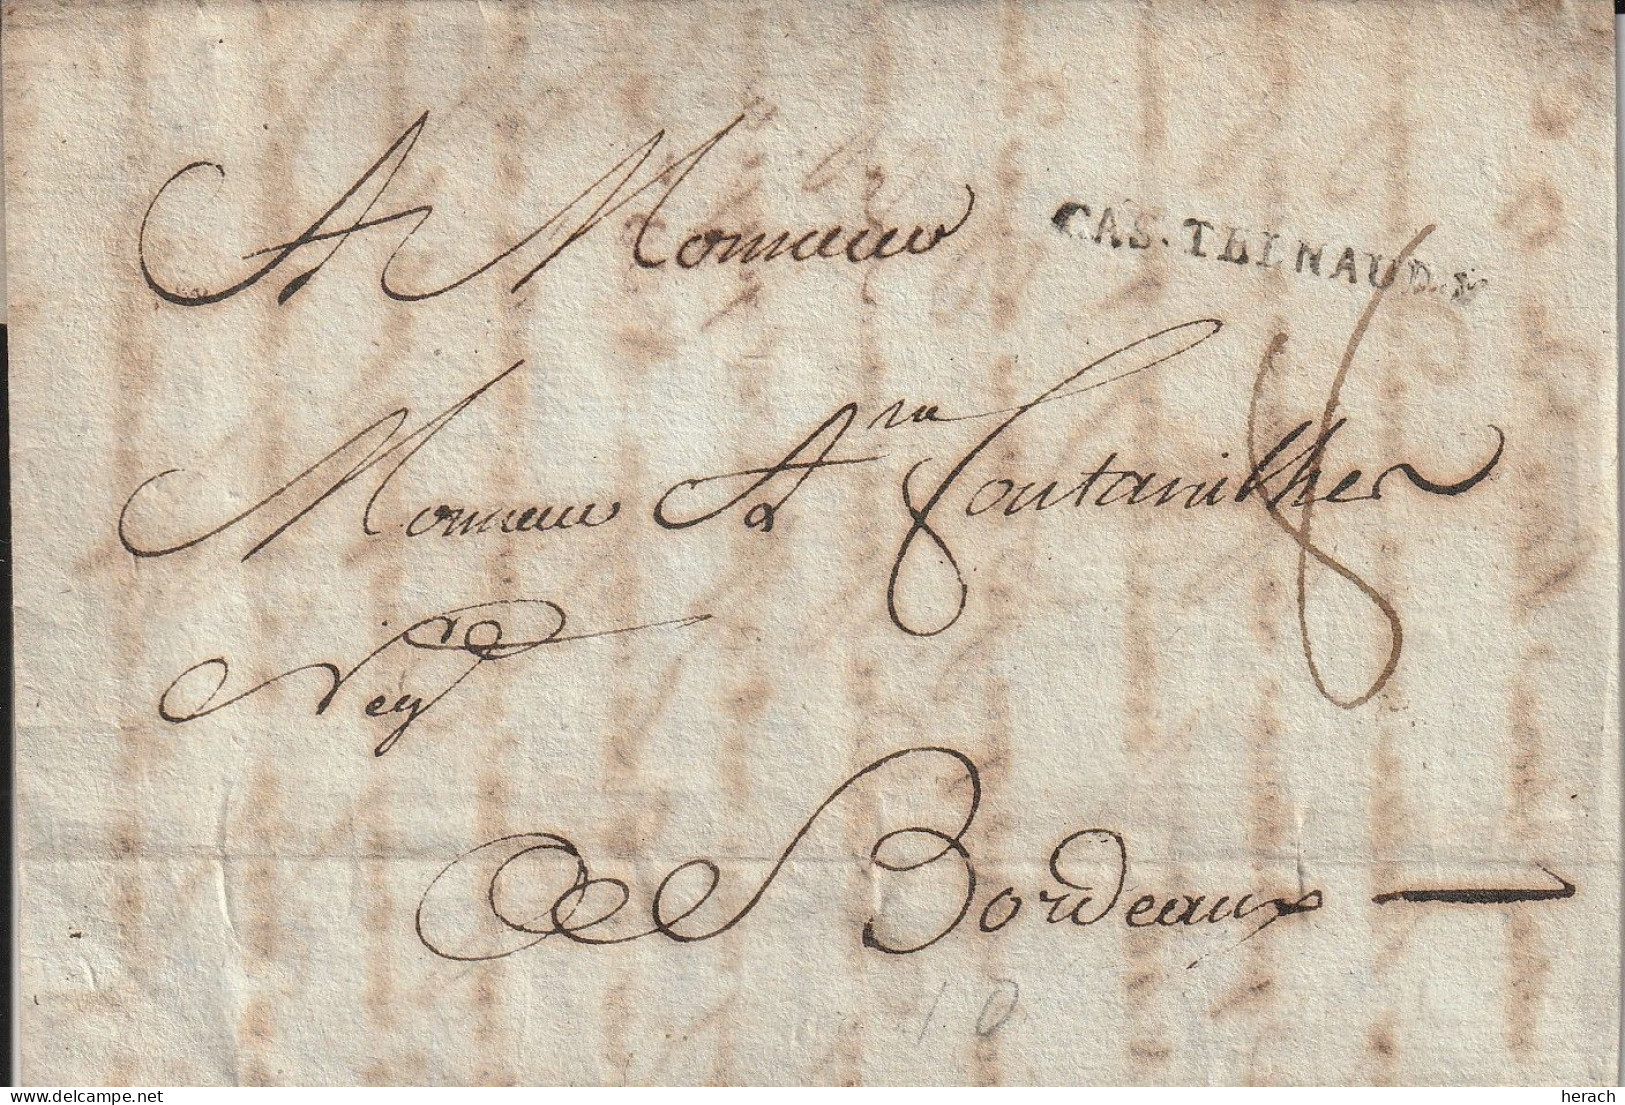 A Monsieur
CAS.TELNAUD.Ri
Monsieur A^ne Fontanilhes
Neg^t
8
A Bordeaux
10
delcampe.net
herach